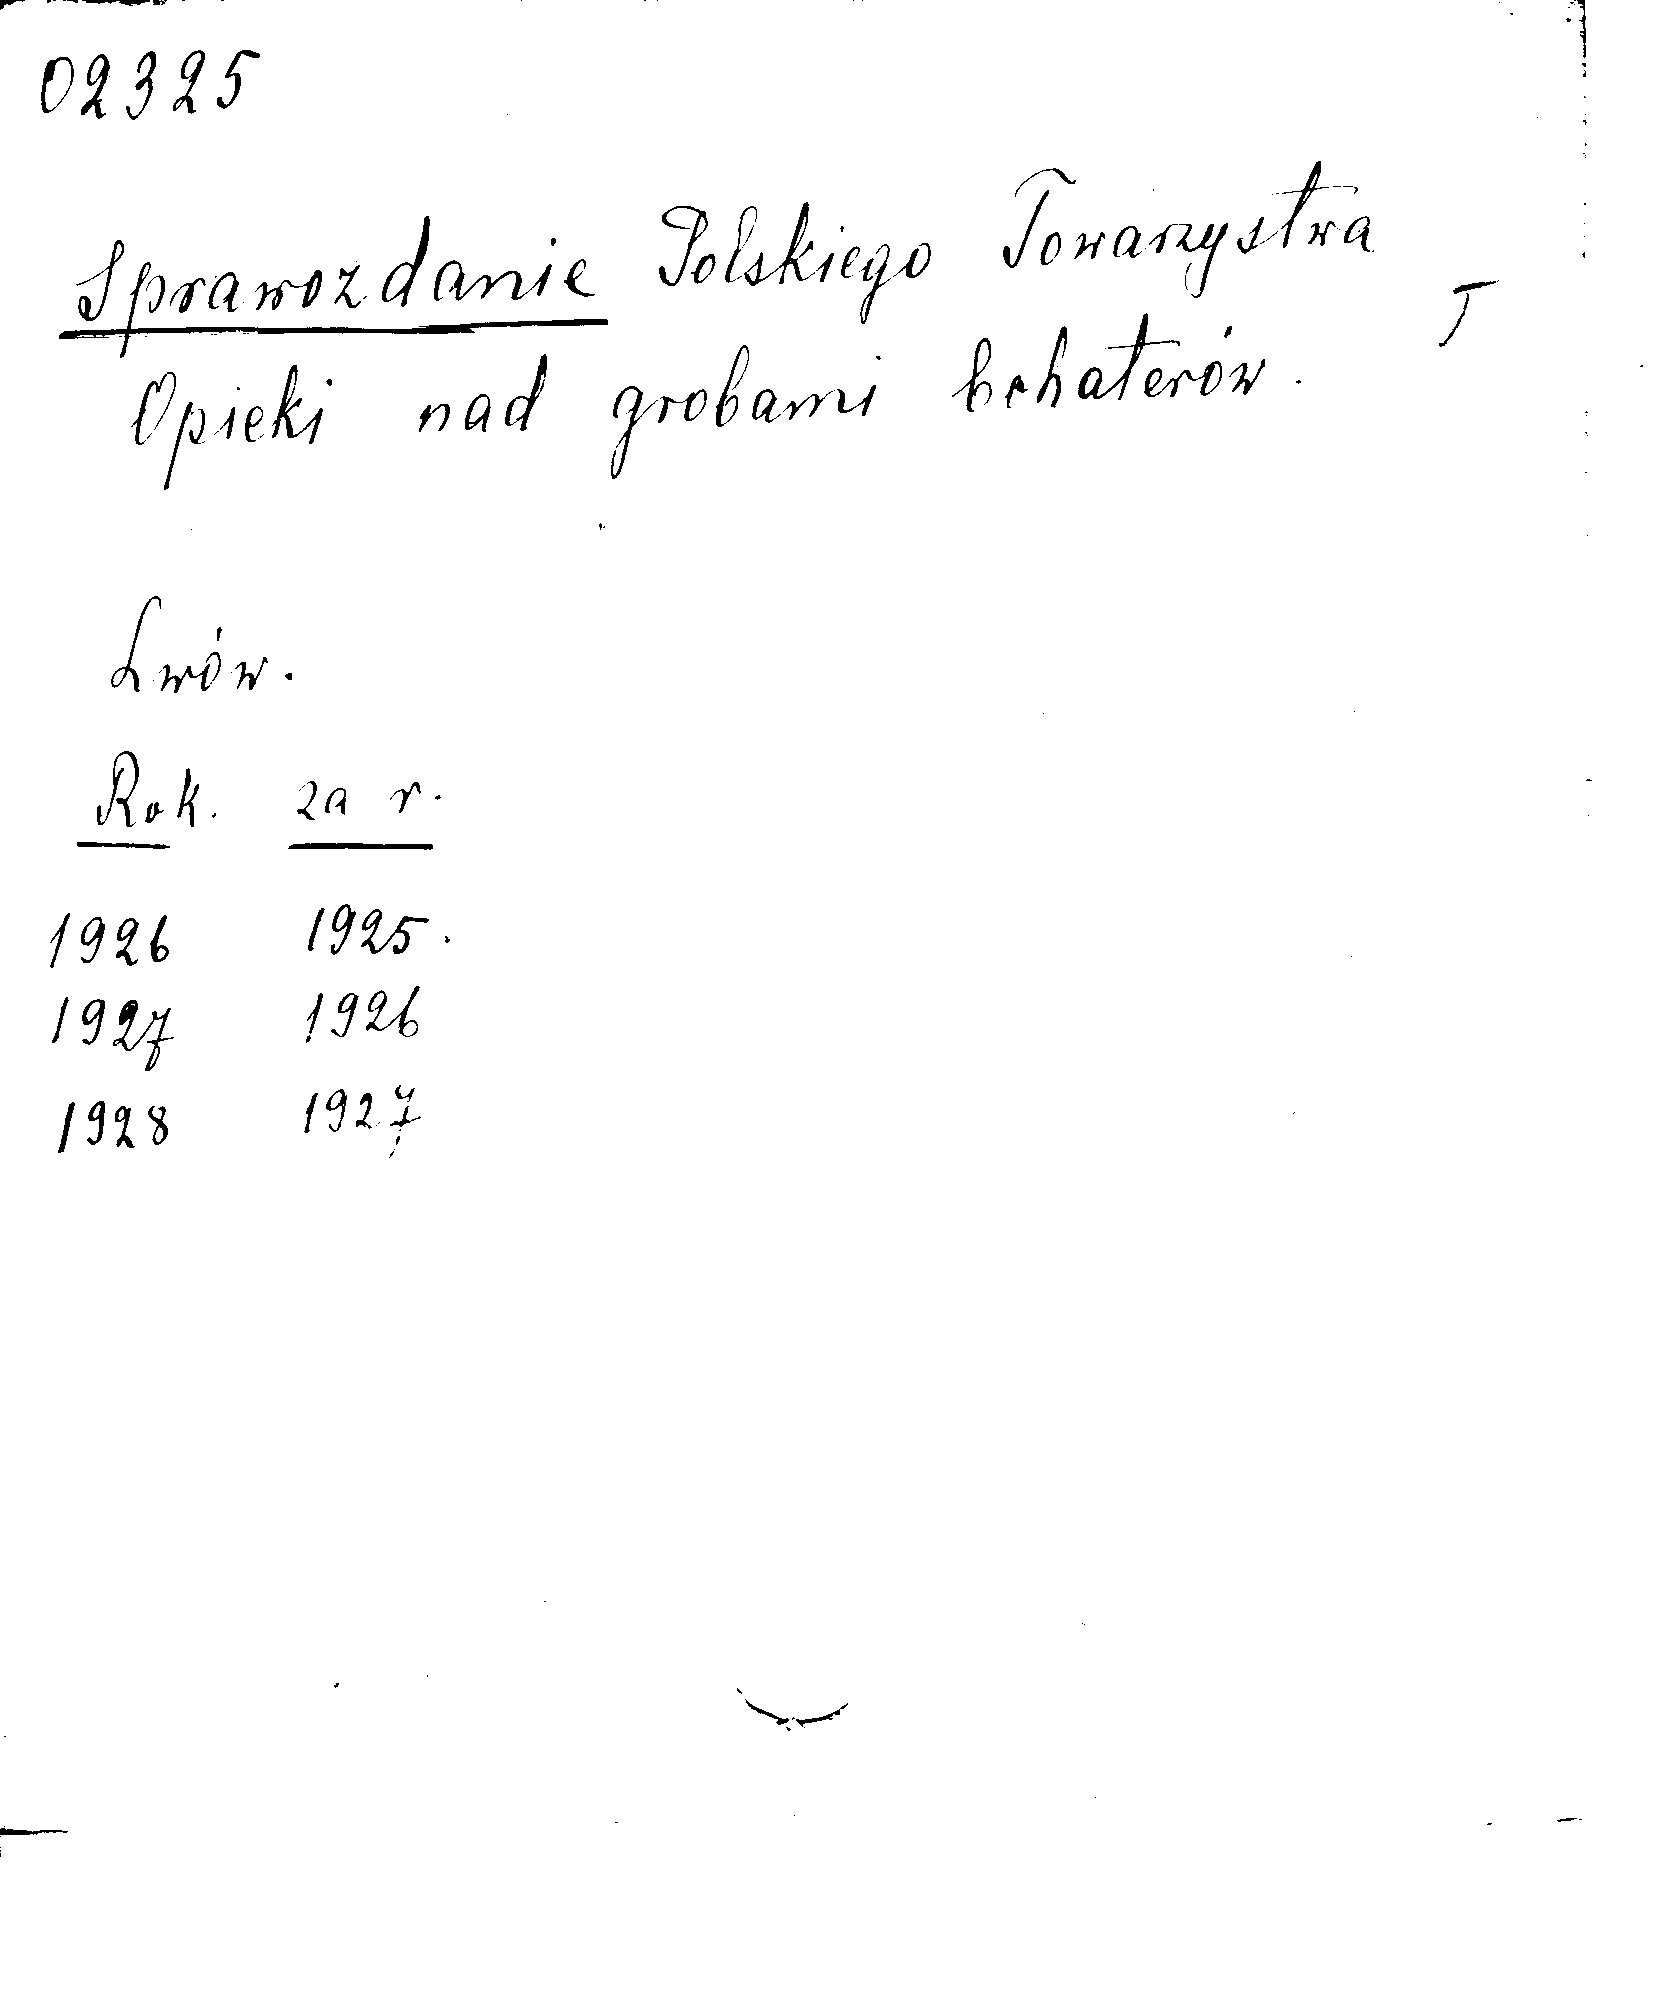 02325
Sprawozdanie Polskiego Towarzystwa
T
Opieki nad grobami bohaterów.
Lwów.
Rok. za r.
1926 1925.
1927 1926
1928 1927